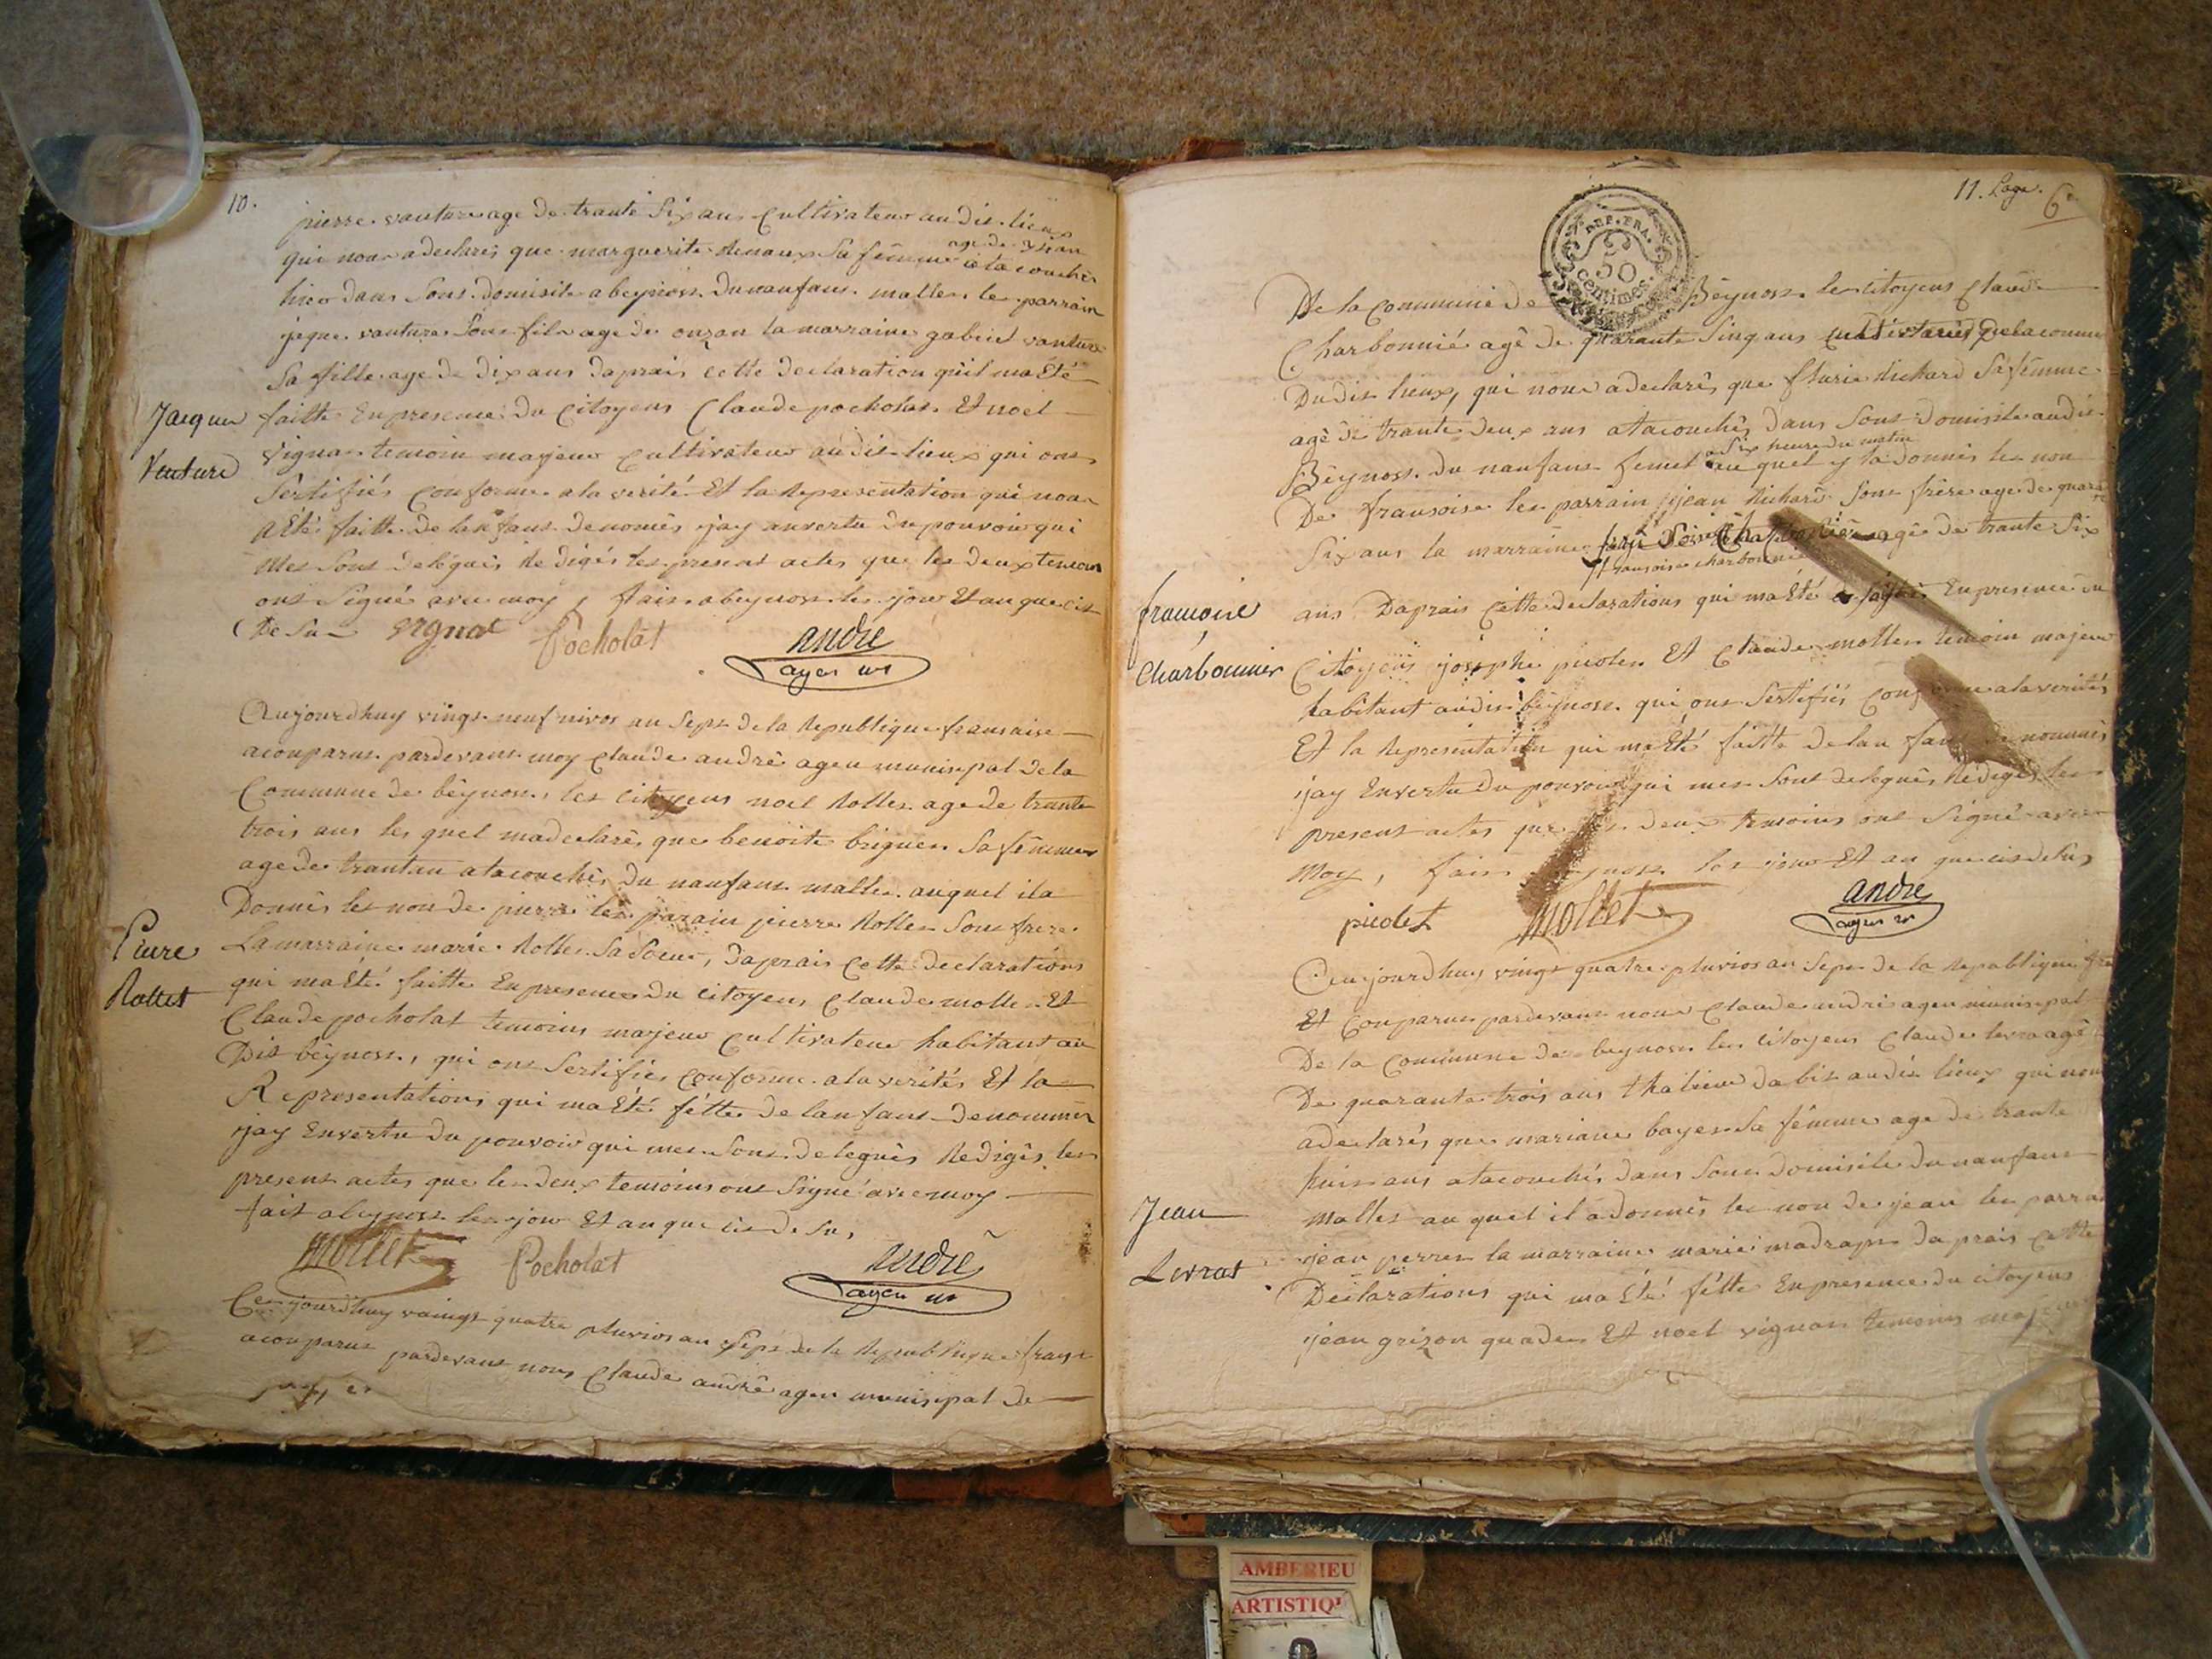 10.
pierre vanture age de trante Six ans Cultivateur au dit lieux
qui nous a declarés que marguerite Renaux Sa fémme age de
a ta couchés
hier dans Sont domisile a beynost du nanfant malles les parrain
jaque vanture Sont fils age de onzan la marraine gabriel vanture
Sa fille age de dix ans daprais cette declaration quil ma Eté
Jacque
Venture
faitte En presence du Citoyens Claude pocholat Et noel
vignat temoin majeur cultivateur au dit lieux qui ont
Sertifiés Conforme a la verité Et la Representation qui nous
a Eté faitte de lanfant denomés jay anvertu du pouvoir qui
mes Sont delégués Redigés les present actes que les deux temoin
ont Signé avec moy, fait a beynost les jour Et an que cit
De Su
vignat Pocholat andre
agen m
Aujourdhuy vingt neuf nivos an Sept de la Republique fransaise
aconparut pardevant moy Claude andré agen munisipal de la
Commune de béynost, les citoyens noel Rollet age de trante
trois ans les quel ma declarés que benoite briguet Sa fémme
age de trantan a tacouchés du nanfant malles auquel il a
Donnés les non de pierre les parain pierre Rollet Sont frere
Pierre
Rollet
La marraine marie Rollet Sa Soeur, daprais cette declarations
qui ma Eté faitte En presence du Citoyens Claude mollet Et
Claude pocholat temoins majeur Cultivateur habitant au
Dit béynost, qui ont Sertifiés conforme a la verités Et la
Representations qui ma Eté fétte de lanfant denommés
jay Envertu du pouvoir qui mes Sont delegués Redigés les
present actes que les deux temoins ont Signé avec moy
fait a beynost les jour Et an que cit de Su,
mollet Pocholat andré
agen m
Cenjourdhuy vaingt quatre pluvios an Sept de la Republique frans
aconparut pardevant nous Claude andré agen munisipal de
11. Page. 6e
REP. FRA.
50
centimes
De la Commune de Béynost les citoyens Claude
Charbonnié agé de quarante Sinq ans
de la comune
Dudit lieux, qui nous a declarés que Richard Sa fémme
agé de trante deux ans atacouchés dans Sont domisile audit
a Six heure du matin
Béynost du nanfant femel au quel y la donnés les non
De fransoise les parrain jean Richard Sont frére age de quara
Six ans la marraine agé de trante Six
fransoise charbonnié
françoise
Charbonnier
ans Daprais cette declarations qui ma Eté faitte En presence du
Citoyens josephe picolet Et Claude mollet temoin majeur
habitant audit béynost qui ont Sertifiés conforme a la verités
Et la Representation qui ma Eté faitte de lan fant nommés
jay Envertu du pouvoir qui mes Sont delegués Rédigés les
present actes que les deux temoins ont Signé avec
Moy, fait les jour Et an que cit de Su,
picolet mollet andre
agen m
Cenjourdhuy vingt quatre pluvios an Sept de la Republique fra
Et Conparut pardevant nous Claude andré agen munisipal
De la Commune de beynost les Citoyens Claude levra agé
De quarante trois ans dabit audit lieux qui nous
a declarés que mariane bayet Sa fémme age de trante
huit ans atacouchés dans Sont domisile du nanfant
Jean
Levrat
Malles au quel il a donnés les non de jean les parrain
jean perret la marraine marie madrapt daprais cette
Déclarations qui ma Eté fétte En presence du citoyens
jean grizon Et noel vignat temoins majeur
AMBERIEU
ARTISTIQU